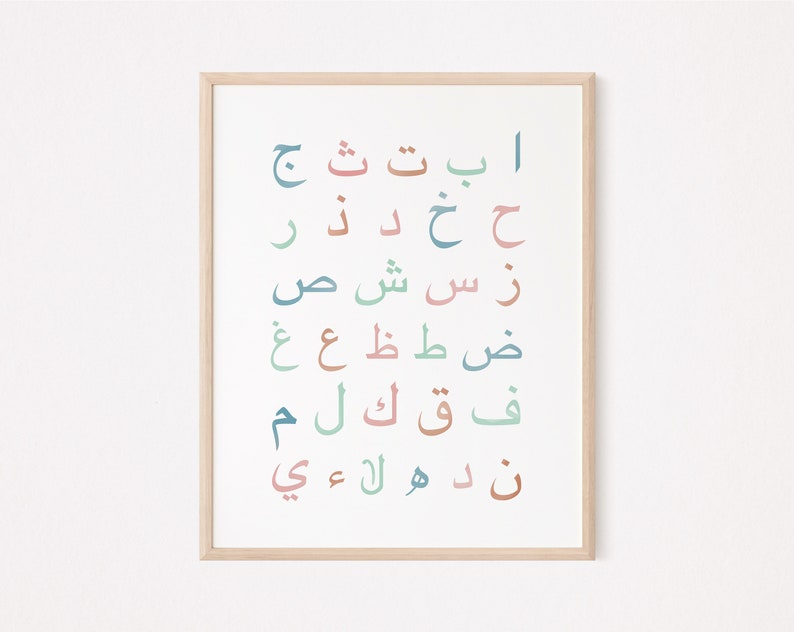 ا ب ت ث ج
ح خ د ذ ر
ز س ش ص
ض ط ظ ع غ
ف ق ك ل م
ن د ه لا ء ي